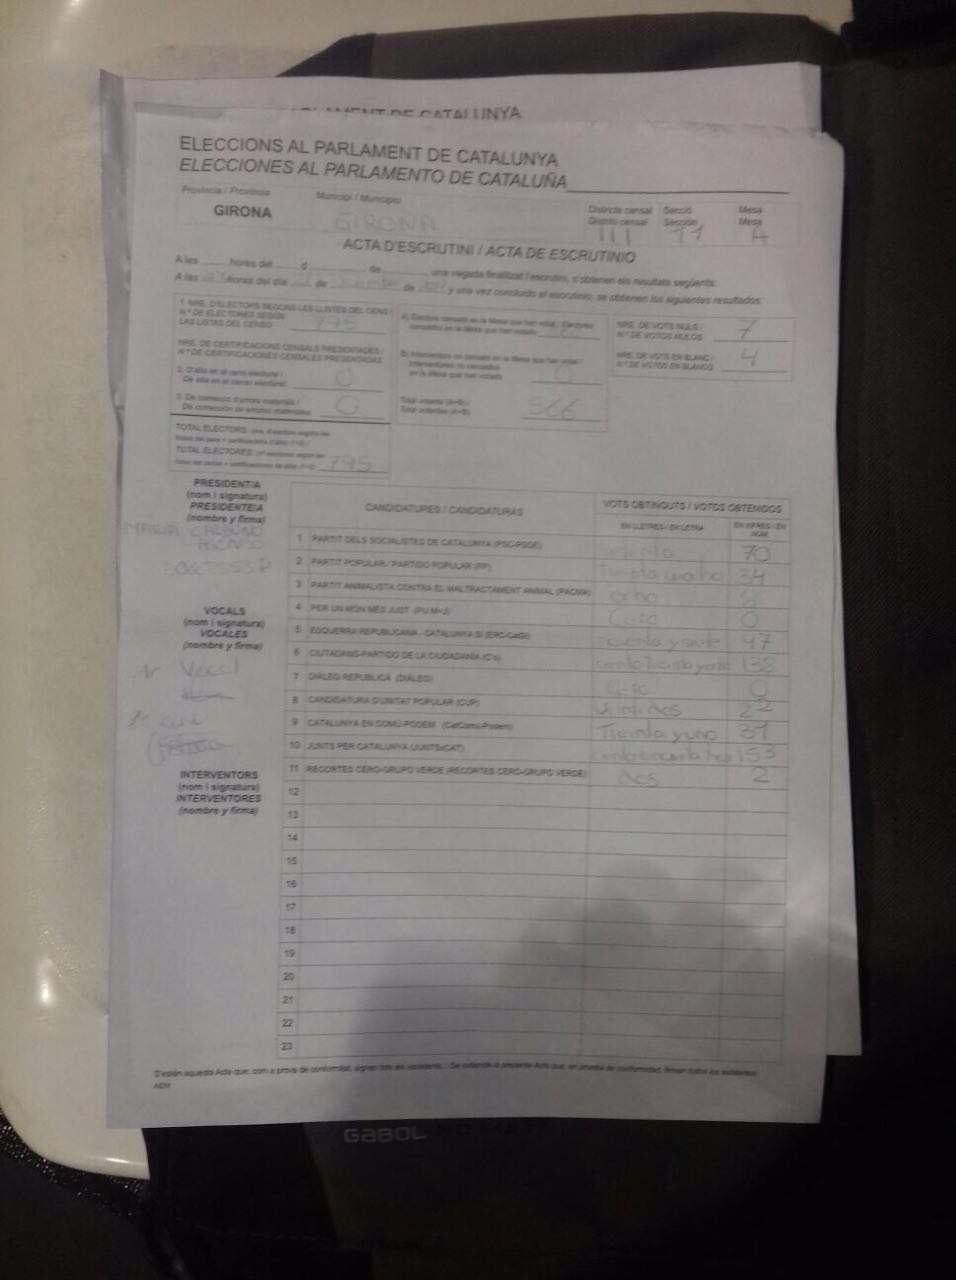 PARLAMENT DE CATALUNYA
ELECCIONS AL PARLAMENT DE CATALUNYA
ELECCIONES AL PARLAMENTO DE CATALUÑA
Província / Provincia
Municipi / Municipio
GIRONA
GIRONA
Districte censal
Distrito censal
III
Secció
Sección
11
Mesa
Mesa
A
ACTA D'ESCRUTINI / ACTA DE ESCRUTINIO
A les ........ hores del ........ d ........ de ........, una vegada finalitzat l'escrutini, s'obtenen els resultats següents:
A las horas del día de de y una vez concluido el escrutinio, se obtienen los siguientes resultados:
1. NRE. D'ELECTORS SEGONS LES LLISTES DEL CENS /
N.º DE ELECTORES SEGÚN
LAS LISTAS DEL CENSO 795
NRE. DE CERTIFICACIONS CENSALS PRESENTADES /
N.º DE CERTIFICACIONES CENSALES PRESENTADAS
2. D'alta en el cens electoral /
De alta en el censo electoral: 0
3. De correcció d'errors materials /
De corrección de errores materiales: 0
TOTAL ELECTORS:
TOTAL ELECTORES: 795
A) Electors censats en la Mesa que han votat / Electores
censados en la Mesa que han votado
B) Interventors no censats en la Mesa que han votat /
Interventores no censados
en la Mesa que han votado 0
Total votants (A+B) /
Total votantes (A+B) 566
NRE. DE VOTS NULS /
N.º DE VOTOS NULOS 7
NRE. DE VOTS EN BLANC /
N.º DE VOTOS EN BLANCO 4
PRESIDENT/A
(nom i signatura)
PRESIDENTE/A
(nombre y firma)
MARIA
VOCALS
(nom i signatura)
VOCALES
(nombre y firma)
1r Vocal
INTERVENTORS
(nom i signatura)
INTERVENTORES
(nombre y firma)
CANDIDATURES / CANDIDATURAS
VOTS OBTINGUTS / VOTOS OBTENIDOS
EN LLETRES / EN LETRA
EN XIFRES / EN NÚM.
1 PARTIT DELS SOCIALISTES DE CATALUNYA (PSC-PSOE) setenta 70
2 PARTIT POPULAR / PARTIDO POPULAR (PP) Treinta cuatro 34
3 PARTIT ANIMALISTA CONTRA EL MALTRACTAMENT ANIMAL (PACMA) ocho 8
4 PER UN MÓN MÉS JUST (PUM+J) Cero 0
5 ESQUERRA REPUBLICANA - CATALUNYA SÍ (ERC-CatSí) noventa y siete 97
6 CIUTADANS-PARTIDO DE LA CIUDADANÍA (C's) ciento Treinta y ocho 138
7 DIÀLEG REPUBLICÀ (DIÀLEG) Cero 0
8 CANDIDATURA D'UNITAT POPULAR (CUP) Veintidos 22
9 CATALUNYA EN COMÚ-PODEM (CatComú-Podem) Treinta y uno 31
10 JUNTS PER CATALUNYA (JUNTSxCAT) 153
11 RECORTES CERO-GRUPO VERDE (RECORTES CERO-GRUPO VERDE) dos 2
12
13
14
15
16
17
18
19
20
21
22
23
S'estén aquesta Acta que, com a prova de conformitat, signen tots els assistents. / Se extiende la presente Acta que, en prueba de conformidad, firman todos los asistentes
AEM
GABOL